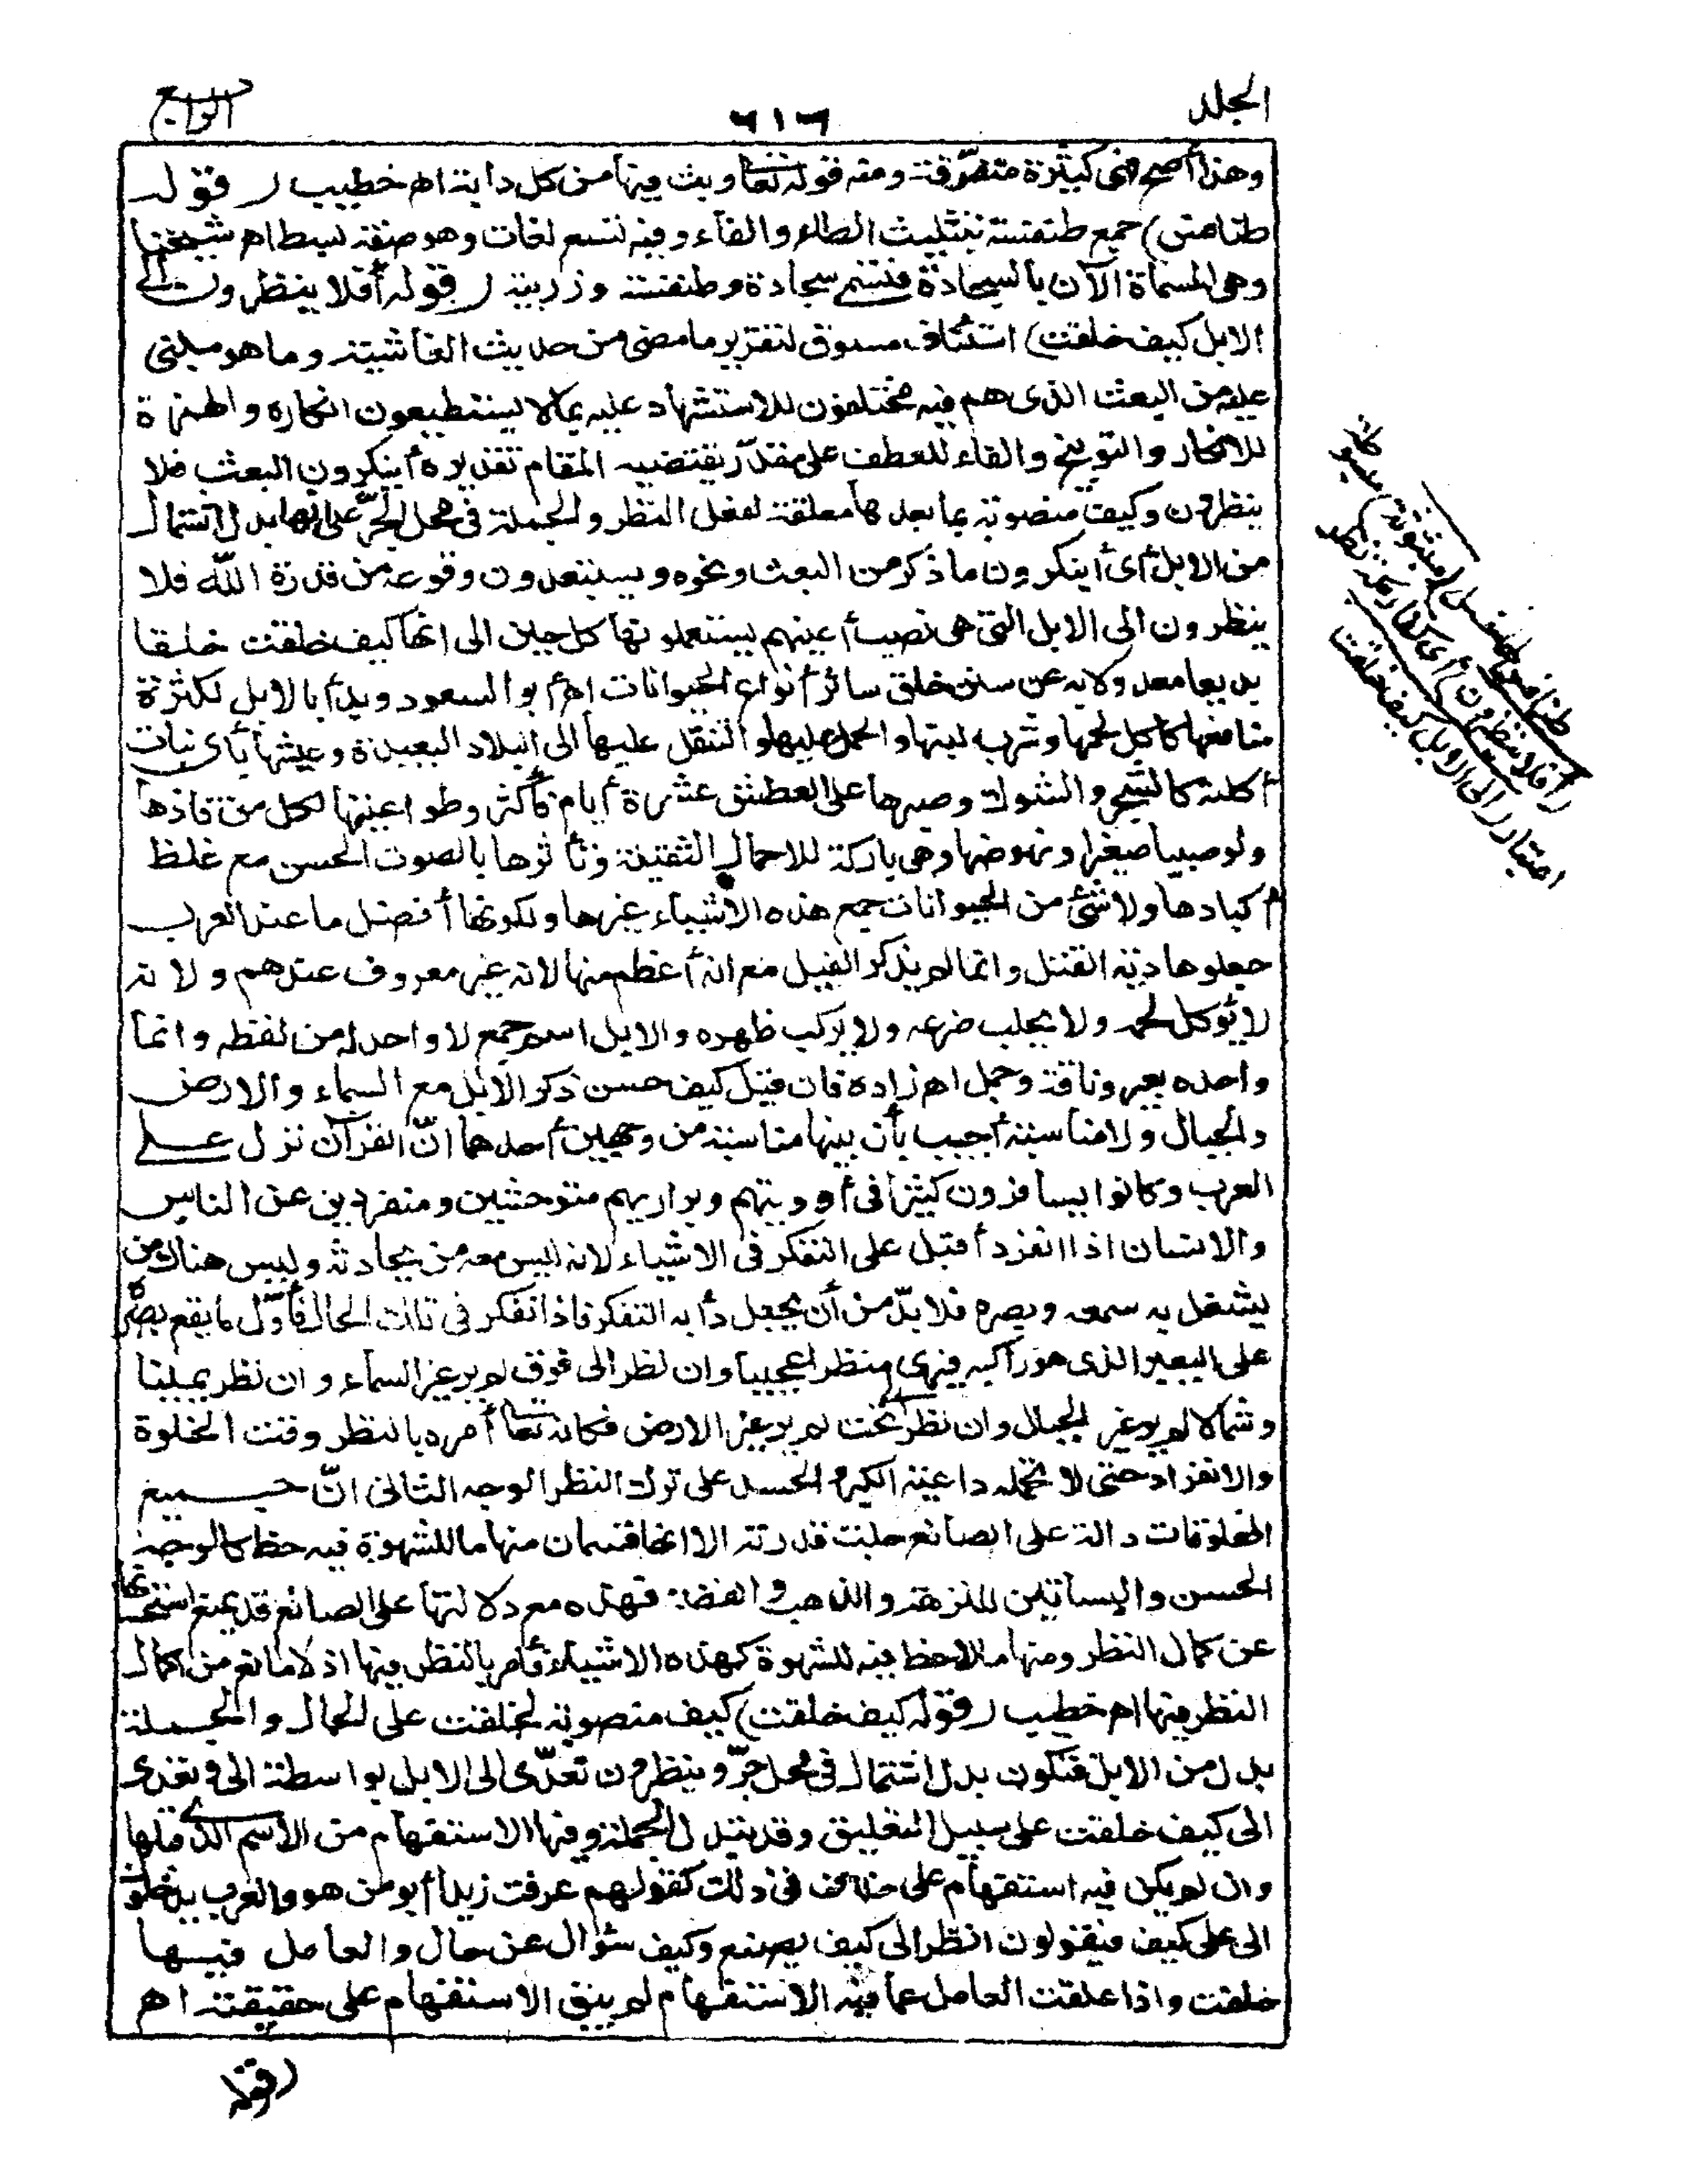 الجلد
٦١٦
الرابع
وهذا أصح فهى كثيرة متفرقة ومنه قوله تعا وبث فيها من كل دابة اه خطيب (قوله
طنافس) جمع طنفسة بتثليث الطاء والفاء وفيه تسع لغات وهو صفة لبسط اه شيخنا
وهى المسماة الآن بالسجادة فتسمى سجادة وطنفسة وزربية (قوله أفلا ينظرون الى
الابل كيف خلقت) استئناف مسوق لتقرير ما مضى من حديث الغاشية وما هو مبنى
عليه من البعث الذى هم فيه مختلفون للاستشهاد عليه بما لا يستطيعون انكاره والهمزة
للانكار والتوبيخ والفاء للعطف على مقدّر يقتضيه المقام تقديره أينكرون البعث فلا
ينظرون وكيف منصوبة بما بعدها معلقة لفعل النظر والجملة فى محل الجرّ على انها بدل اشتمال
من الابل أى أينكرون ما ذكر من البعث ونحوه ويستبعدون وقوعه من قدرة اللّه فلا
ينظرون الى الابل التى هى نصب أعينهم يستعملونها كل حين الى انها كيف خلقت خلقا
بديعا معدولا به عن سنن خلق سائر أنواع الحيوانات اه أبو السعود وبدأ بالابل لكثرة
منافعها كأكل لحمها وشرب لبنها والحمل عليها والتنقل عليها الى البلاد البعيدة وعيشها بأى نبات
أكلته كالشجر والشوك وصبرها على العطش عشرة أيام فأكثر وطواعيتها لكل من قادها
ولو صبيا صغيرا ونهوضها وهى باركة للاحمال الثقيلة وتأثرها بالصوت الحسن مع غلظ
أكبادها ولا شئ من الحيوانات جمع هذه الاشياء غيرها ولكونها أفضل ما عند العرب
جعلوها دية القتل وانما لم يذكر الفيل مع انه أعظم منها لانه غير معروف عندهم ولانه
لا يؤكل لحمه ولا يحلب ضرعه ولا يركب ظهره والابل اسم جمع لا واحد له من لفظه وانما
واحده بعير وناقة وجمل اه زاده فان قيل كيف حسن ذكر الابل مع السماء والارض
والجبال ولا مناسبة أجيب بأن بينها مناسبة من وجهين أحدهما انّ القرآن نزل على
العرب وكانوا يسافرون كثيرا فى أوديتهم وبراريهم متوحشين ومنفردين عن الناس
والانسان اذا انفرد أقبل على التفكر فى الاشياء لانه ليس معه من يحادثه وليس هناك من
يشتغل به سمعه وبصره فلا بدّ من أن يجعل دأبه التفكر فاذا تفكر فى تلك الحال فأوّل ما يقع بصره
على البعير الذى هو راكبه فيرى منظرا عجيبا وان نظر الى فوق لم ير غير السماء وان نظر يمينا
وشمالا لم ير غير الجبال وان نظر الى تحت لم ير غير الارض فكانه تعا أمره بالنظر وقت الخلوة
والانفراد حتى لا تحمله داعية الكبر والحسد على ترك النظر الوجه الثانى انّ جميع
المخلوقات دالة على الصانع جلت قدرته الا انها قسمان منها ما للشهوة فيه حظ كالوجه
الحسن والبساتين للنزهة والذهب والفضة فهذه مع دلالتها على الصانع قد يمنع استحسانها
عن كمال النظر ومنها ما لا حظ فيه للشهوة كهذه الاشياء فأمر بالنظر فيها اذ لا مانع من اكمال
النظر فيها اه خطيب (قوله كيف خلقت) كيف منصوبة لخلقت على الحال والجملة
بدل من الابل فتكون بدل اشتمال فى محل جرّ وينظرون تعدّى الى الابل بواسطة الى وتعدى
الى كيف خلقت على سبيل التعليق وقد تبدل الجملة وفيها الاستفهام من الاسم الذى قبلها
وان لم يكن فيه استفهام على خلاف فى ذلك كقولهم عرفت زيدا أبو من هو والعرب يدخلون
الى على كيف فيقولون انظر الى كيف يصنع وكيف سؤال عن حال والعامل فيها
خلقت واذا علقت العامل عما فيه الاستفهام لم يبق الاستفهام على حقيقته اه
(قوله
طنافس لها خمل (مبثوثة) مبسوطة
(أفلا ينظرون) أى كفار مكة نظر
اعتبار (الى الابل كيف خلقت